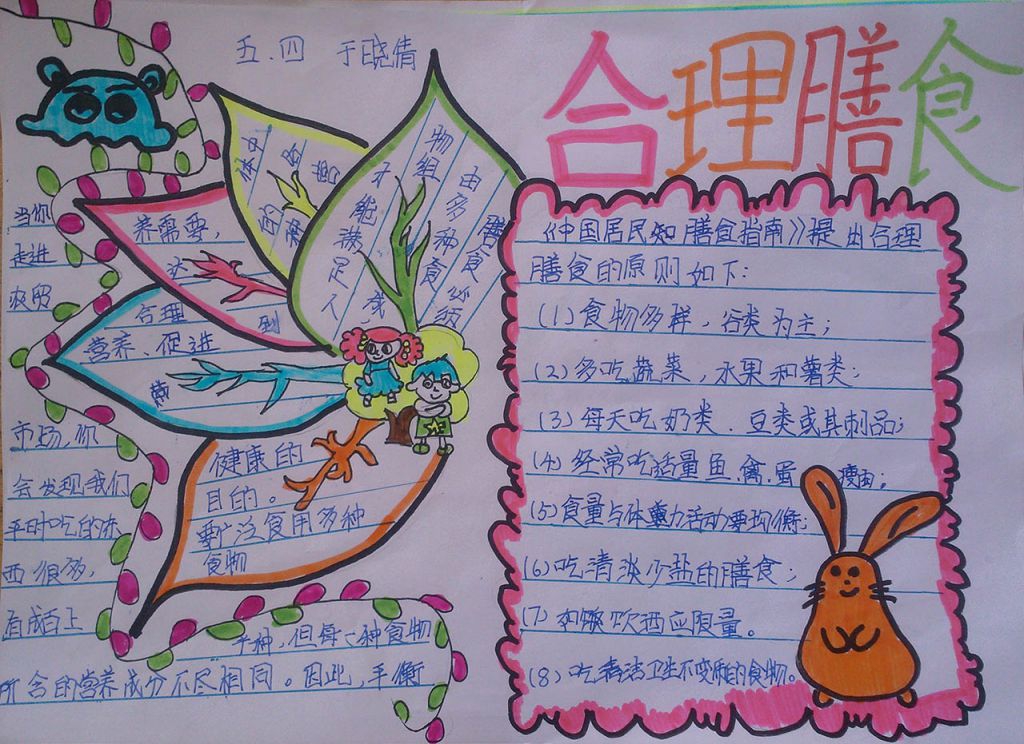 合理膳食
五.四 于晓倩
当你
走进
农贸
市场,你
会发现我们
平时吃的东
西很多,
有成百上
千种,但每一种食物
所含的营养成分不尽相同。因此,平衡
膳食必须
由多种食
物组成
才能满足人
养需要,
达到
合理
营养、促进
健康的
目的。
要广泛食用多种
食物
《中国居民知膳食指南》提出合理
膳食的原则如下:
(1)食物多样,谷类为主;
(2)多吃蔬菜,水果和薯类;
(3)每天吃奶类.豆类或其制品;
(4)经常吃适量鱼.禽.蛋 瘦肉。
(5)食量与体重力活动要均衡;
(6)吃清淡少盐的膳食;
(7)饮酒应限量。
(8)吃清洁卫生不变质的食物。